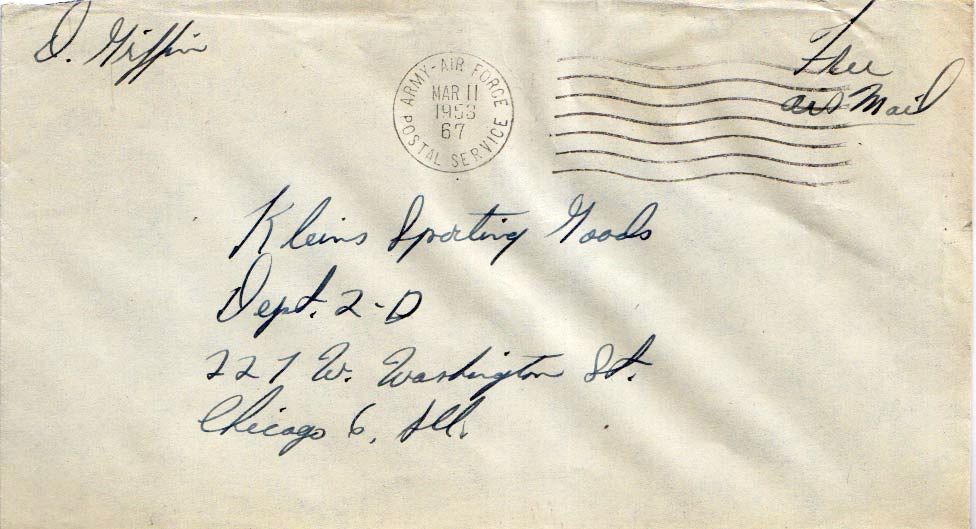 D. Griffin
ARMY-AIR FORCE
MAR 11
1953
67
POSTAL SERVICE
Free
air Mail
Kleins Sporting Goods
Dept. 2-D
227 W. Washington St.
Chicago 6, Ill.